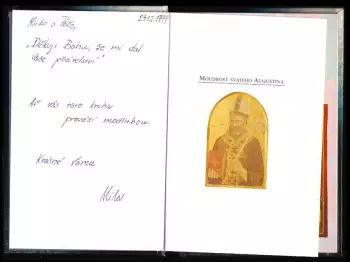 Mirko a Petro,
24.12.1999
„Děkuji Bohu, že mi dal
Vaše přátelství"
Ať vás tato kniha
provází modlitbou.
Krásné Vánoce
Miloš
MOUDROST SVATÉHO AUGUSTINA